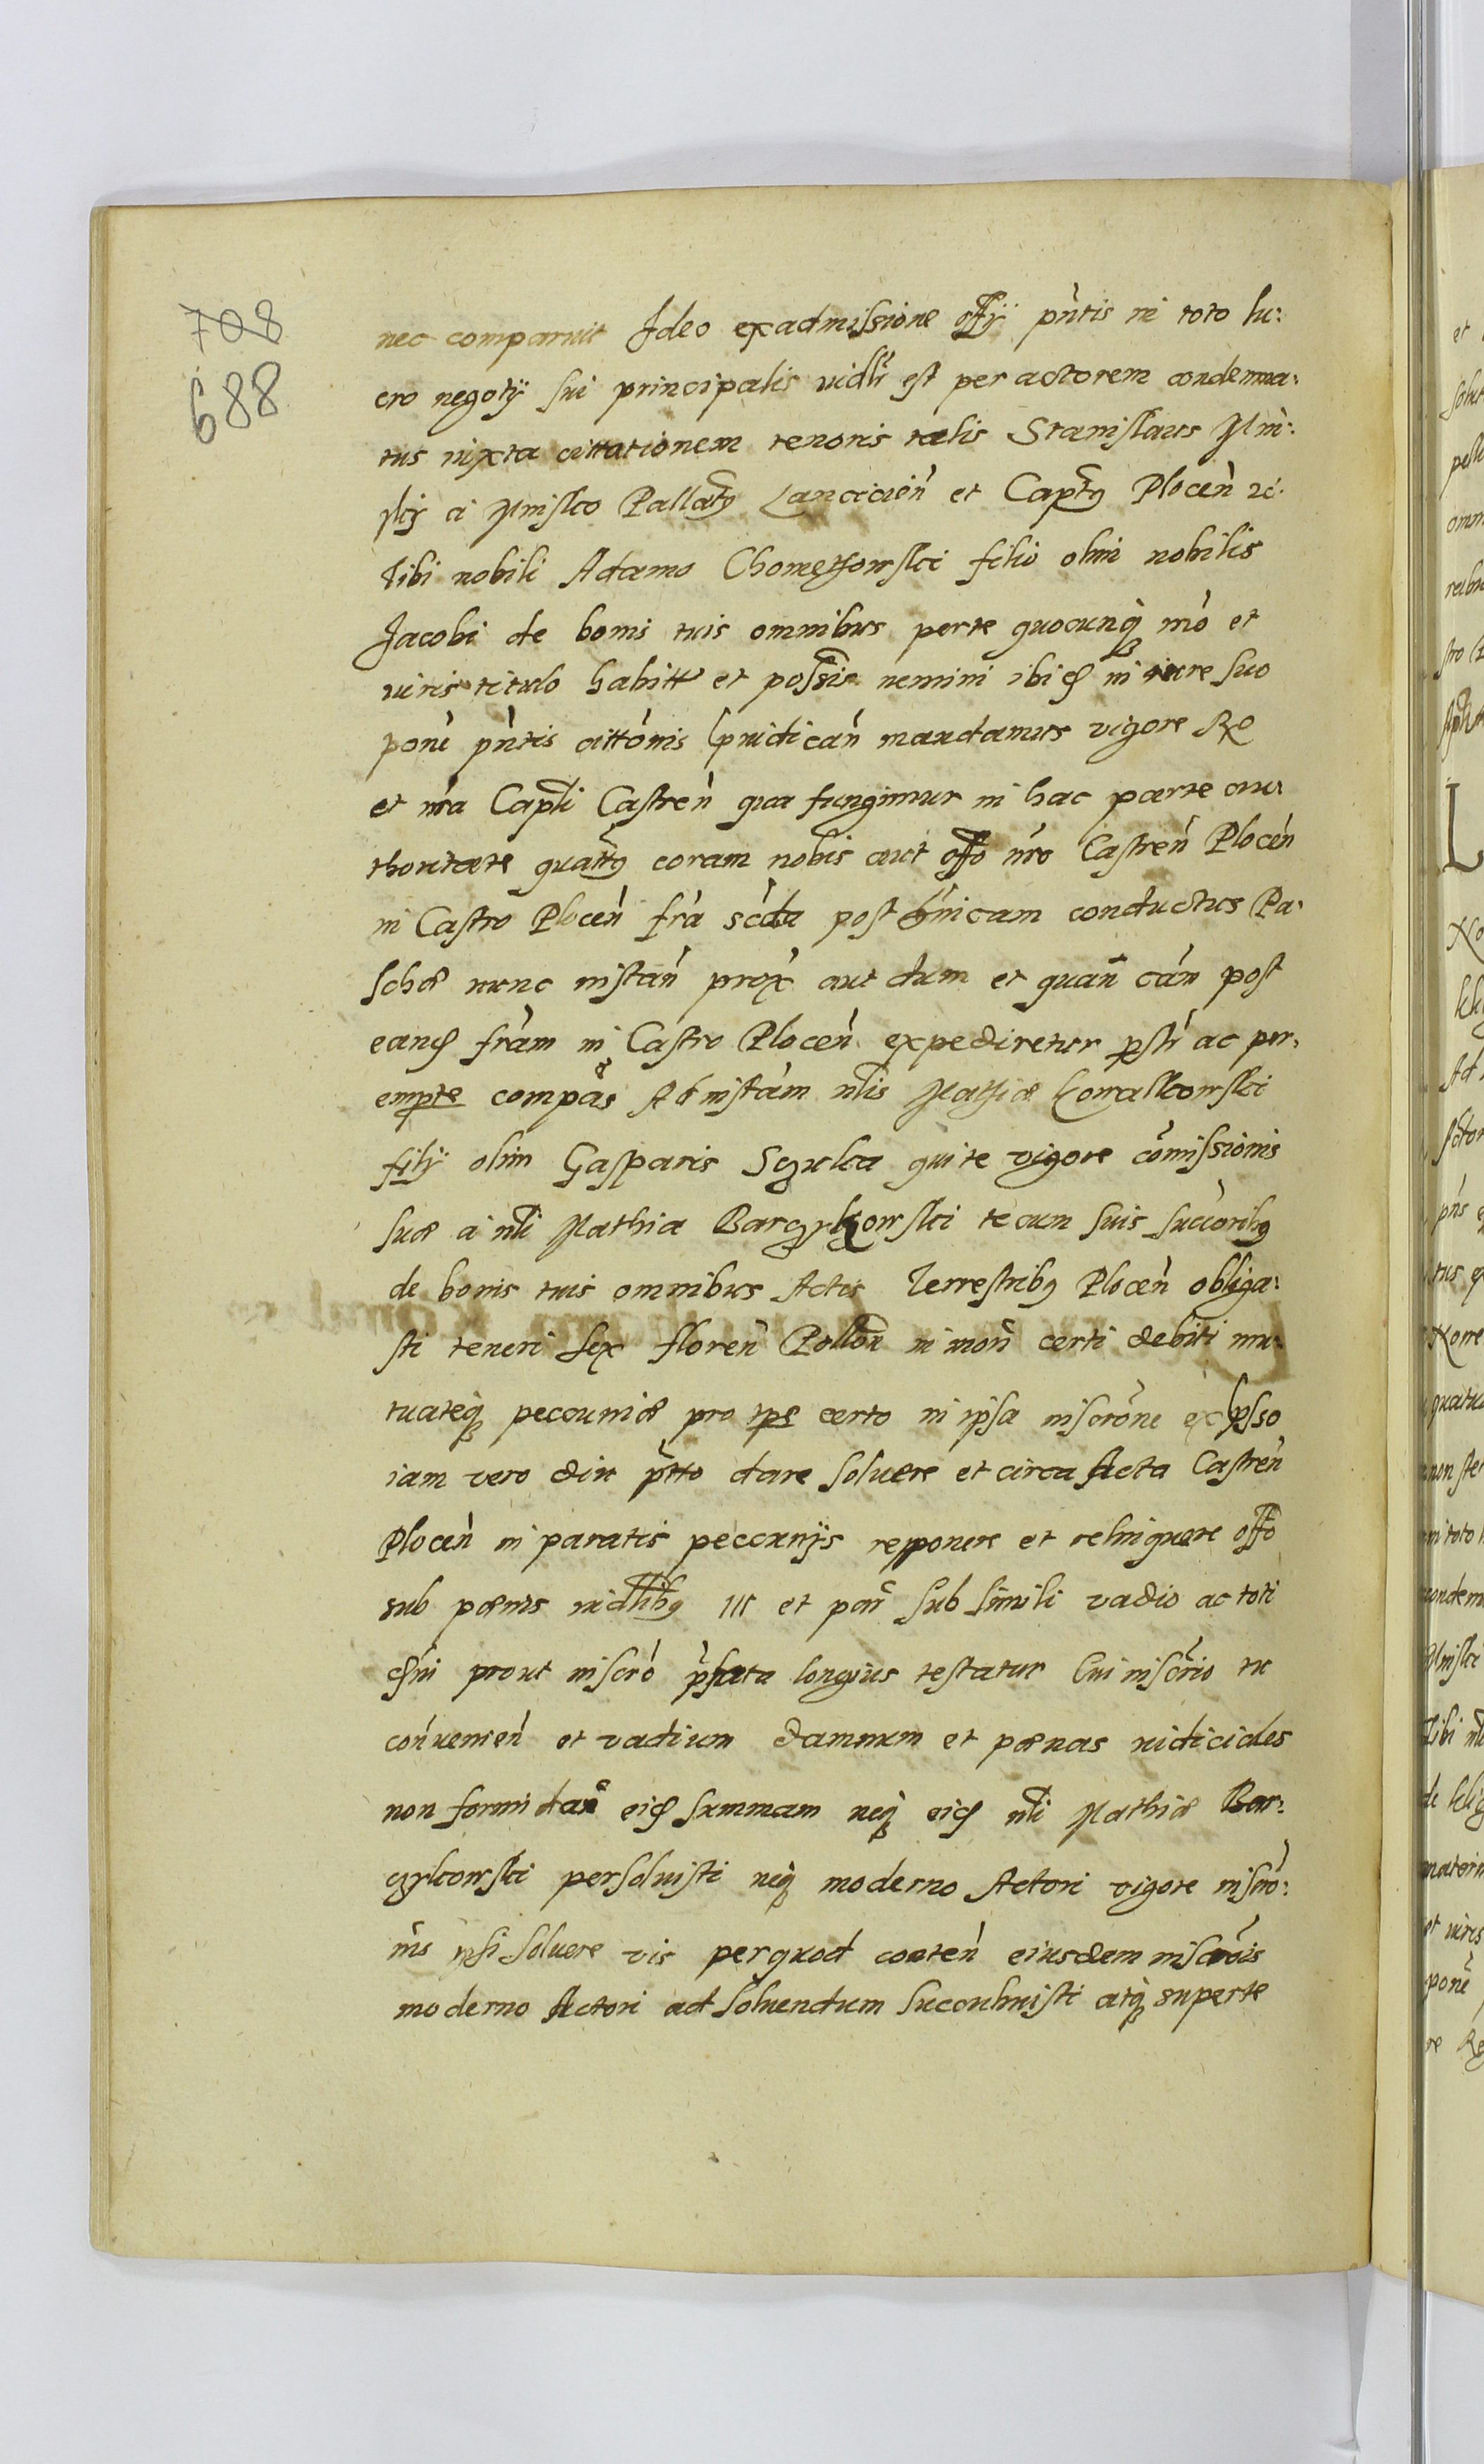 708
688
nec comparuit Ideo ex admissione offÿ pñtis in toto lu:
cro negotÿ sui principalis vidlt est per actorem condemna:
tus iuxta cittationem tenoris talis Stanislaus Min:
skÿ a Minsko Pallats Lanciciеñ et Capts Ploceñ zc.
Tibi nobili Adamo Chometowski filio olim nobilis
Jacobi de bonis tuis omnibus per te quocunq mõ et
iuris titulo habitt et possis nemini ibiq in iure suo
poni pñtis cittõnis pndicañ mandamus vigore Ro
et nrã Capli Castreñ qua fungimur in hac parte au:
thoritate quatts coram nobis aut offo nrõ Castreñ Ploceñ
in Castro Ploceñ frã scda post dnicam conductus Pa:
schæ nunc instañ prox aut dum et quañ cãm post
eanq frãm in Castro Ploceñ expediretur pslr ac per:
empte compãs Ad instãm nlis Mathiæ Kowalkowski
filÿ olim Gasparis Szulca qui te vigore cõmissionis
suæ a nli Mathia Barcykowski tecum suis succoribs
de bonis tuis omnibus Actis Terrestribs Ploceñ obliga:
sti teneri sex floreñ Polloñ in moñ certi debiti mu:
tuateq peccuniæ pro tpe certo in ipsa inscrõne expsso
iam vero diu pttõ dare soluere et circa Acta Castreñ
Ploceñ in paratis peccunÿs reponere et relinquere offo
sub pœnis vidlibs III et pañ sub simili vadio ac toti
prout inscrõ psata longius testatur Cui inscrõio tu
cõnvenieñ et vadium damnum et pœnas iudiciales
non formidañ eiq summam neq eiq nli Mathiæ Bar:
cykowski persoluisti neq moderno Actori vigore inscrõ:
nis ipsi soluere vis per quod conteñ eiusdem inscrõis
moderno Actori ad soluendum succubuisti atq super te